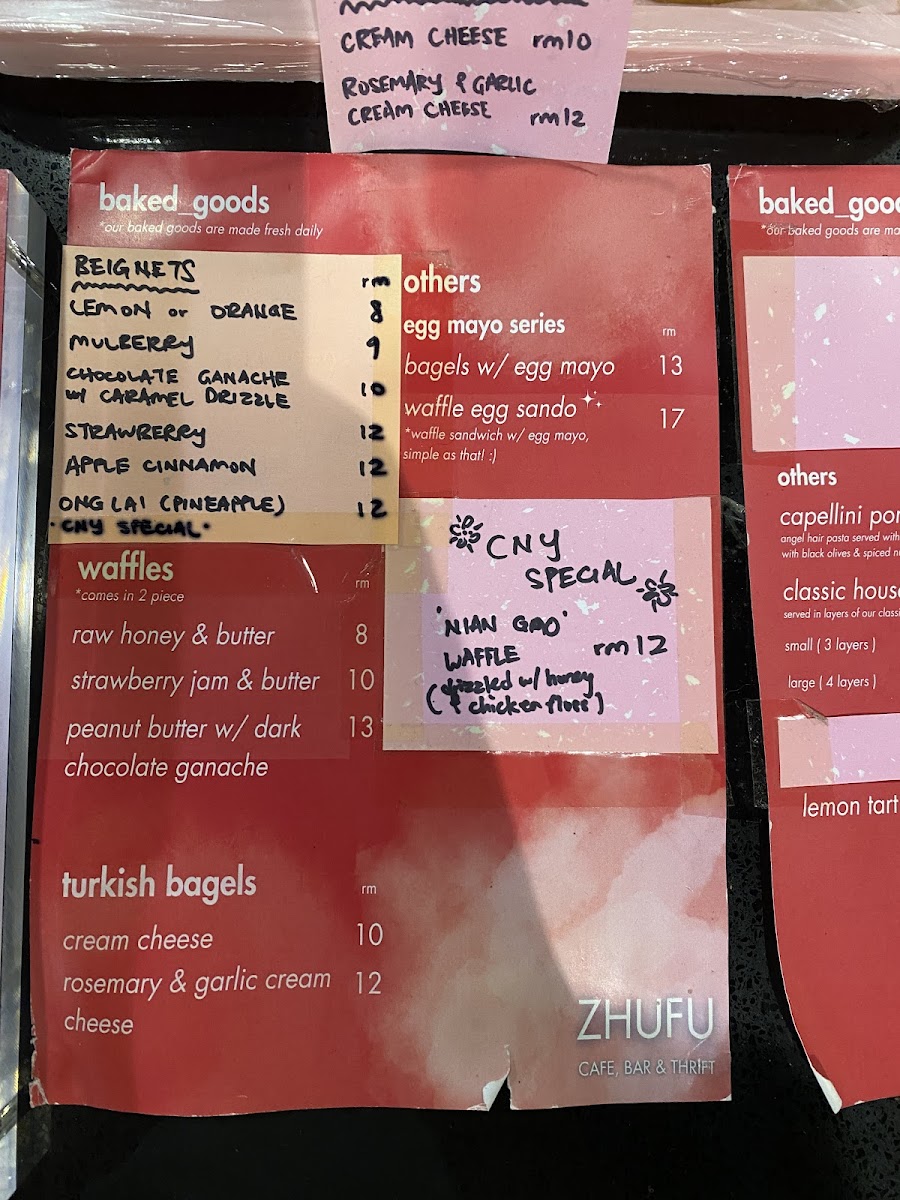 CREAM CHEESE rm10
ROSEMARY & GARLIC
CREAM CHEESE rm12
baked_goods
*our baked goods are made fresh daily
BEIGNETS rm
LEMON or ORANGE 8
MULBERRY 9
CHOCOLATE GANACHE
w/ CARAMEL DRIZZLE 10
STRAWBERRY 12
APPLE CINNAMON 12
ONG LAI (PINEAPPLE) 12
•CNY SPECIAL•
others
egg mayo series rm
bagels w/ egg mayo 13
waffle egg sando 17
*waffle sandwich w/ egg mayo,
simple as that! :)
CNY
SPECIAL
'NIAN GAO'
WAFFLE rm12
(drizzled w/ honey
& chicken floss)
waffles rm
*comes in 2 piece
raw honey & butter 8
strawberry jam & butter 10
peanut butter w/ dark 13
chocolate ganache
turkish bagels rm
cream cheese 10
rosemary & garlic cream 12
cheese
ZHUFU
CAFE, BAR & THRIFT
baked_goo
*our baked goods are ma
others
capellini
angel hair pasta served with
with black olives & spiced
classic
served in layers of our
small ( 3 layers )
large ( 4 layers )
lemon tart